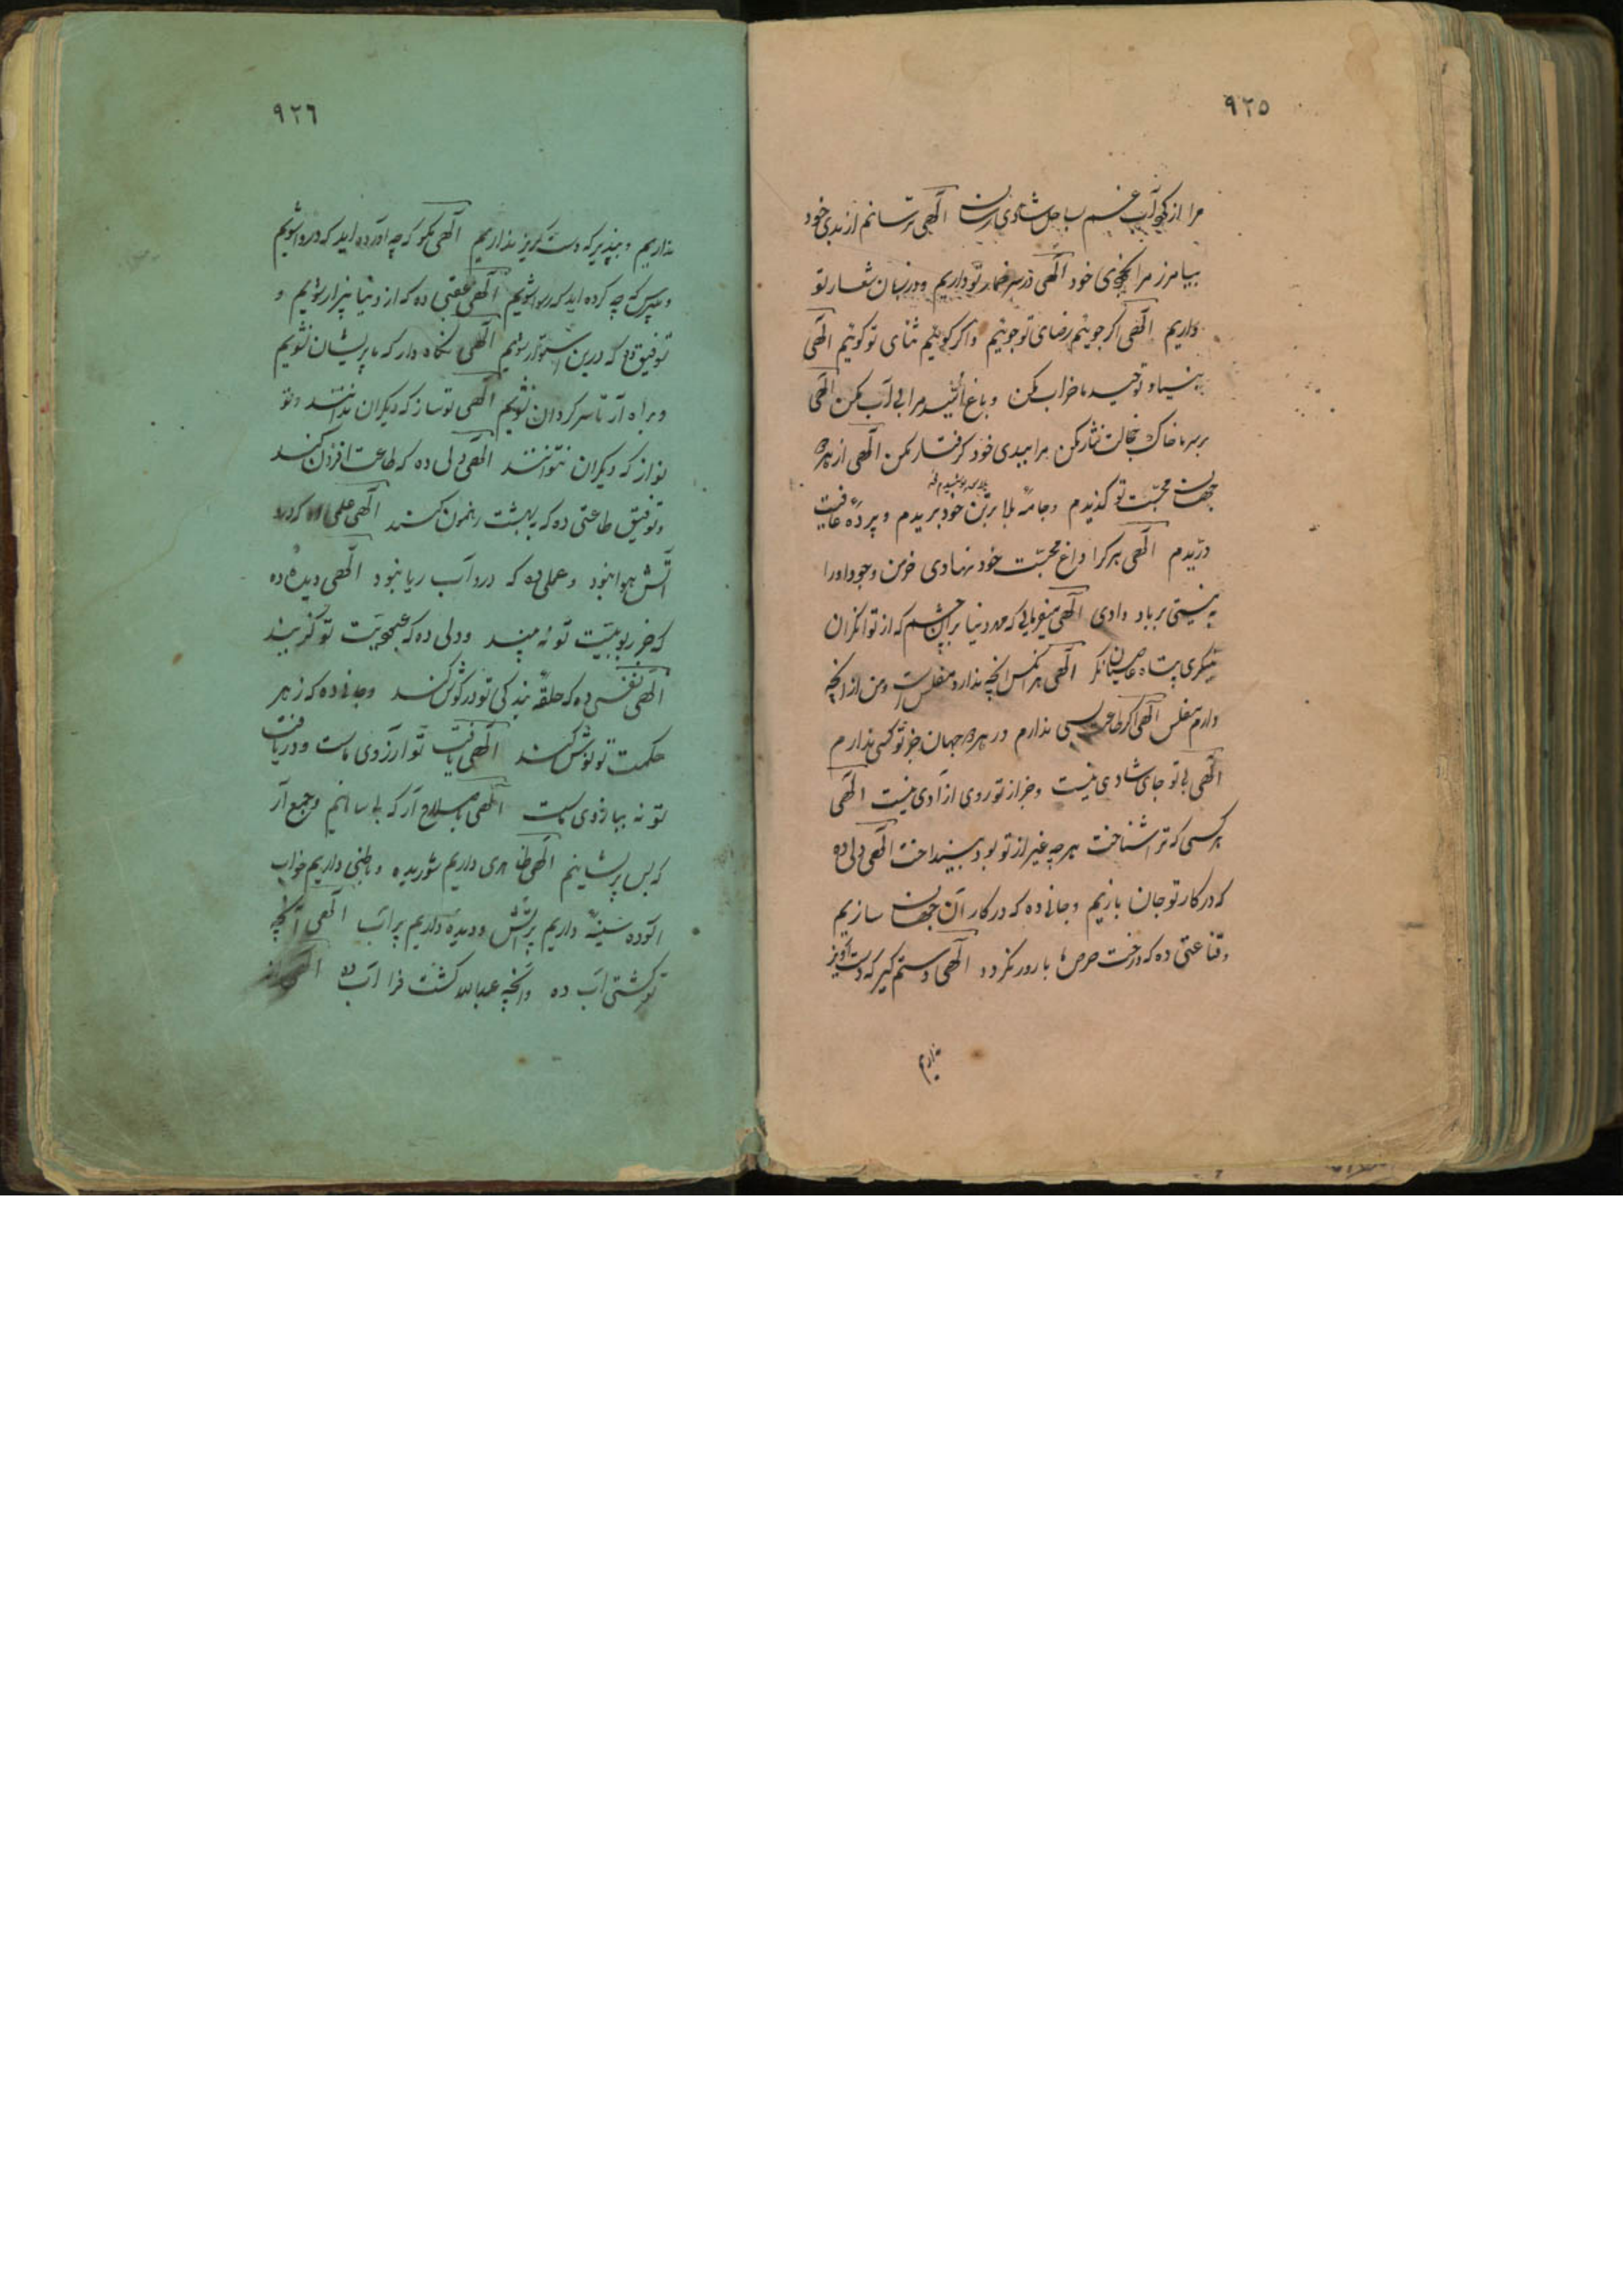 ٩٢٥
مرا از گرداب غم بساحل شادی رسان الهی ترسانم از بدی خود
بیامرز مرا بخوبی خود الهی در سر خمار تو داریم و در زبان شعار تو
داریم الهی اگر جوییم رضای تو جوییم و اگر گوییم ثنای تو گوییم الهی
بنیاد توحید ما خراب مکن و باغ امید مرا بی آب مکن الهی
بر سر ما خاک خجالت نثار مکن مرا ببدی خود گرفتار مکن الهی از هردو
جهان محبت تو گزیدم و جامه بلا بر تن خود بریدم و پرده عافیت
دریدم الهی هر کرا داغ محبت خود نهادی خرمن وجود او را
به نیستی بر باد دادی الهی میفرمایی که در دنیا بدان چشم که از توانگران
مینگری بمن عاصیان نگر الهی هر کس از آنچه ندارد مفلس است و من از آنچه
دارم مفلس الهی اگر طاعت بسی ندارم در هردو جهان جز تو کسی ندارم
الهی بی تو جای شادی نیست و جز از تو روی آزادی نیست الهی
هر کسی که ترا شناخت هر چه غیر از تو بود بینداخت الهی دلی ده
که در کار تو جان بازیم و جانی ده که در کار آن جهان سازیم
و قناعتی ده که درخت حرص ما بارور نگردد الهی دستم گیر که دست آویز
نداریم
٩٢٦
نداریم و بپذیر که دست گریز نداریم الهی مگو که چه آورده اید که دروا شویم
و مپرس که چه کرده اید که رسوا شویم الهی عقبی ده که از دنیا بیزار شویم و
توفیق ده که در دین استوار شویم الهی نگاه دار که ما پریشان نشویم
و براه آر تا سرگردان نشویم الهی تو ساز که دیگران ندانند و تو
نواز که دیگران نتوانند الهی دلی ده که طاعت افزون کند
و توفیق طاعتی ده که به بهشت رهنمون کند الهی علمی ده که درو
آتش هوا نبود و عملی ده که درو آب ریا نبود الهی دیده ده
که جز ربوبیت تو نه بیند و دلی ده که عبودیت تو گزیند
الهی نفسی ده که حلقه بندگی تو در گوش کند و جانی ده که زهر
حکمت تو نوش کند الهی یافت تو آرزوی ماست و دریافت
تو نه ببازوی ماست الهی بصلاح آر که بی سامانیم و جمع آر
که بس پریشانیم الهی ظاهری داریم شوریده و باطنی داریم خواب
آلوده سینه داریم پر آتش و دیده داریم پر آب الهی آنچه
تو کشتی آب ده و آنچه عبدالله کشت فرا آب ده الهی